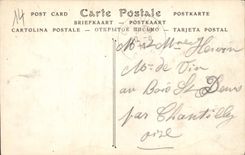 14
POST CARD Carte Postale POSTKARTE
BRIEFKAART — POSTKAART
CARTOLINA POSTALE — ОТКРЫТОЕ ПИСЬМО — TARJETA POSTAL
Mr et Mme
Md de Vin
au Bois St Denis
par Chantilly
oise